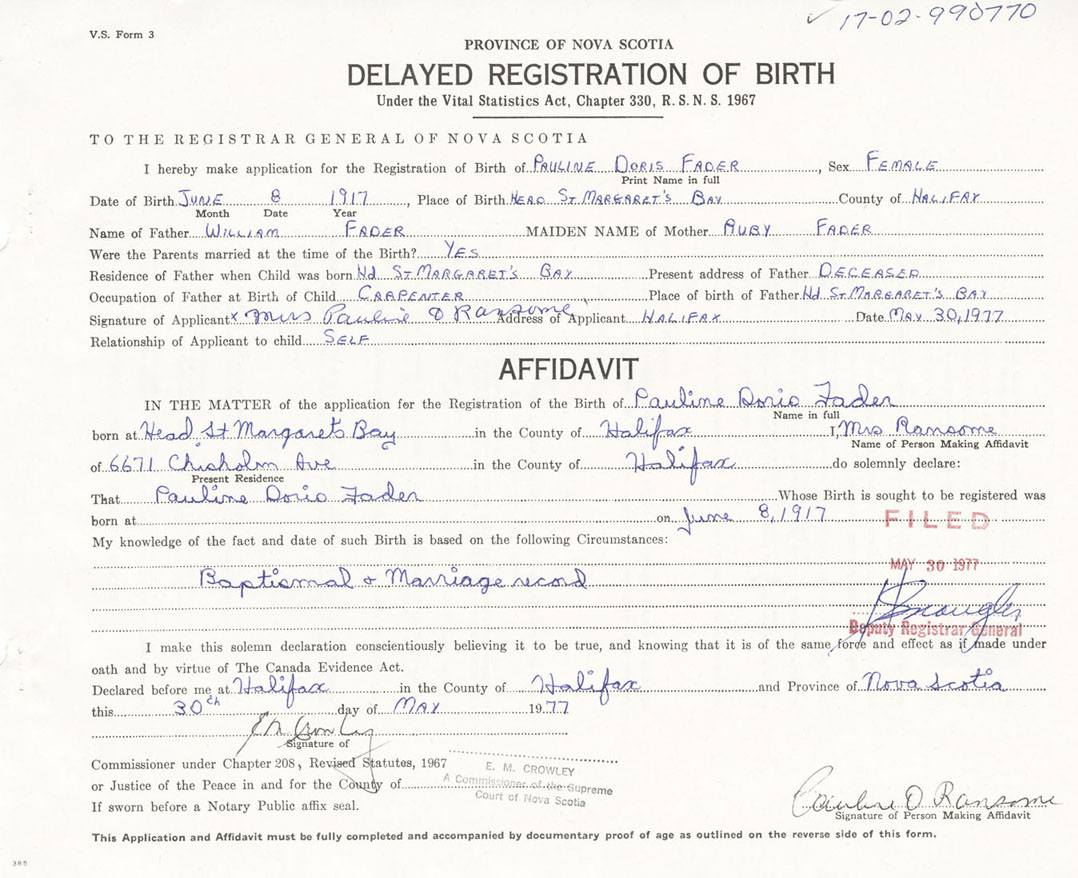 V.S. Form 3
17-02-990770
PROVINCE OF NOVA SCOTIA
DELAYED REGISTRATION OF BIRTH
Under the Vital Statistics Act, Chapter 330, R. S. N. S. 1967
TO THE REGISTRAR GENERAL OF NOVA SCOTIA
I hereby make application for the Registration of Birth of PAULINE DORIS FADER, Sex FEMALE
Print Name in full
Date of Birth JUNE 8 1917, Place of Birth HEAD ST MARGARET'S BAY County of HALIFAX
Month Date Year
Name of Father WILLIAM FADER MAIDEN NAME of Mother RUBY FADER
Were the Parents married at the time of the Birth? YES
Residence of Father when Child was born Hd ST MARGARET'S BAY Present address of Father DECEASED
Occupation of Father at Birth of Child CARPENTER Place of birth of Father Hd ST MARGARET'S BAY
Signature of Applicant x Mrs Pauline D Ransome Address of Applicant HALIFAX Date MAY 30, 1977
Relationship of Applicant to child SELF
AFFIDAVIT
IN THE MATTER of the application for the Registration of the Birth of Pauline Doris Fader
Name in full
born at Head St Margaret's Bay in the County of Halifax I, Mrs Ransome
Name of Person Making Affidavit
of 6671 Chisholm Ave in the County of Halifax do solemnly declare:
Present Residence
That Pauline Doris Fader Whose Birth is sought to be registered was
born at on June 8, 1917
FILED
My knowledge of the fact and date of such Birth is based on the following Circumstances:
MAY 30 1977
Baptismal & Marriage record
Deputy Registrar General
I make this solemn declaration conscientiously believing it to be true, and knowing that it is of the same force and effect as if made under
oath and by virtue of The Canada Evidence Act.
Declared before me at Halifax in the County of Halifax and Province of Nova Scotia
this 30th day of MAY 1977
E M Crowley
Signature of
Commissioner under Chapter 208, Revised Statutes, 1967
or Justice of the Peace in and for the County of
E. M. CROWLEY
A Commissioner of the Supreme
Court of Nova Scotia
If sworn before a Notary Public affix seal.
Pauline D Ransome
Signature of Person Making Affidavit
This Application and Affidavit must be fully completed and accompanied by documentary proof of age as outlined on the reverse side of this form.
385